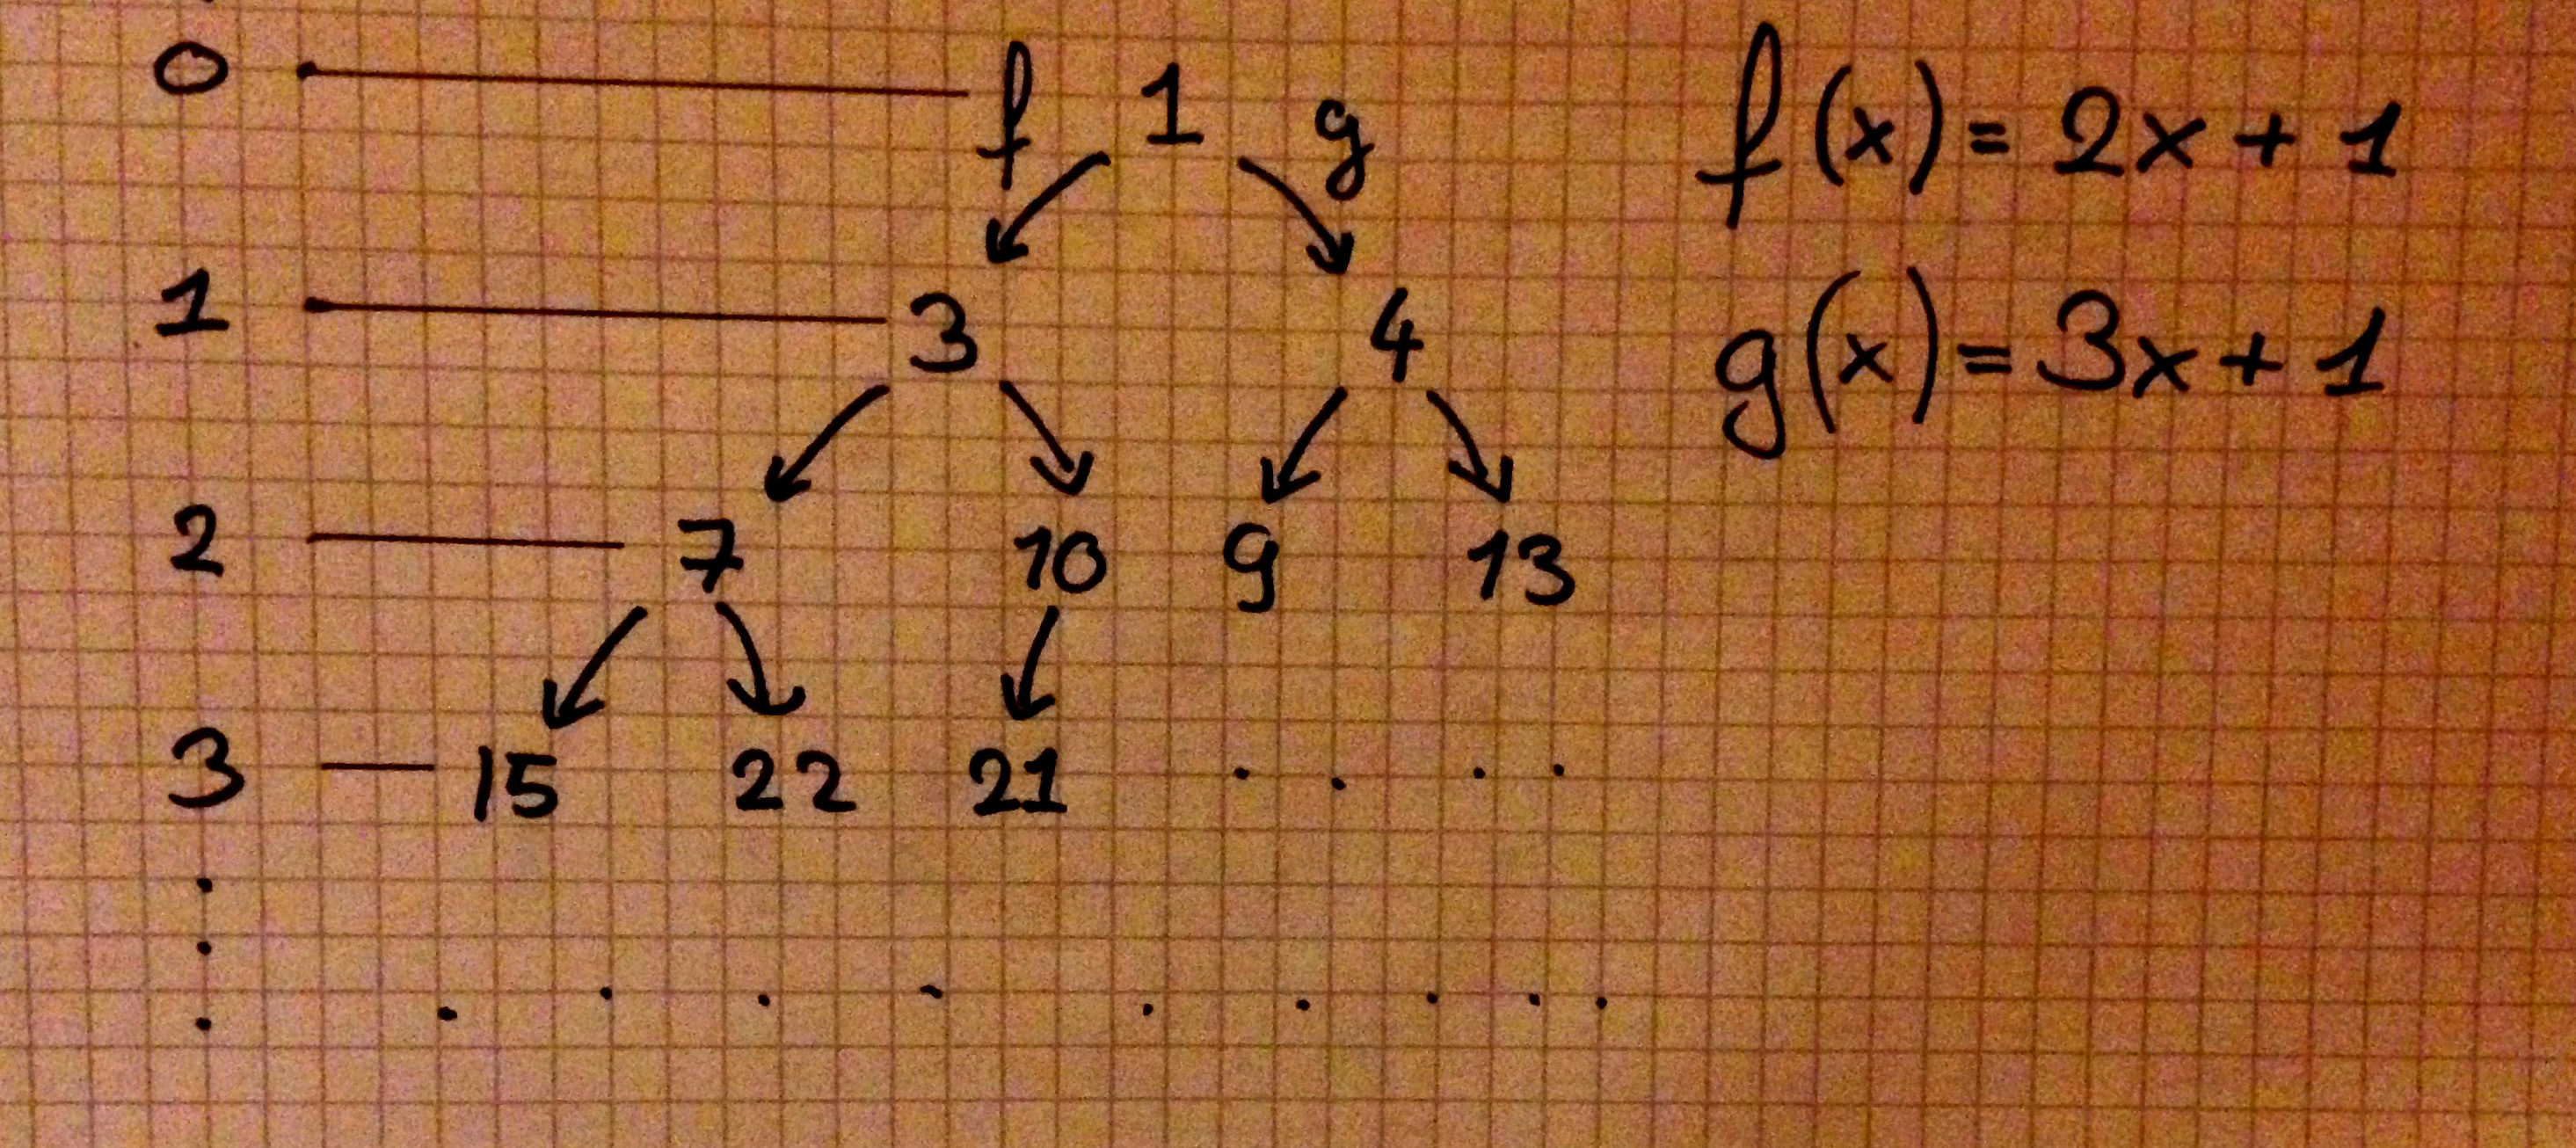 0 f 1 g
f(x) = 2x + 1
1 3 4
g(x) = 3x + 1
2 7 10 9 13
3 15 22 21 . . . .